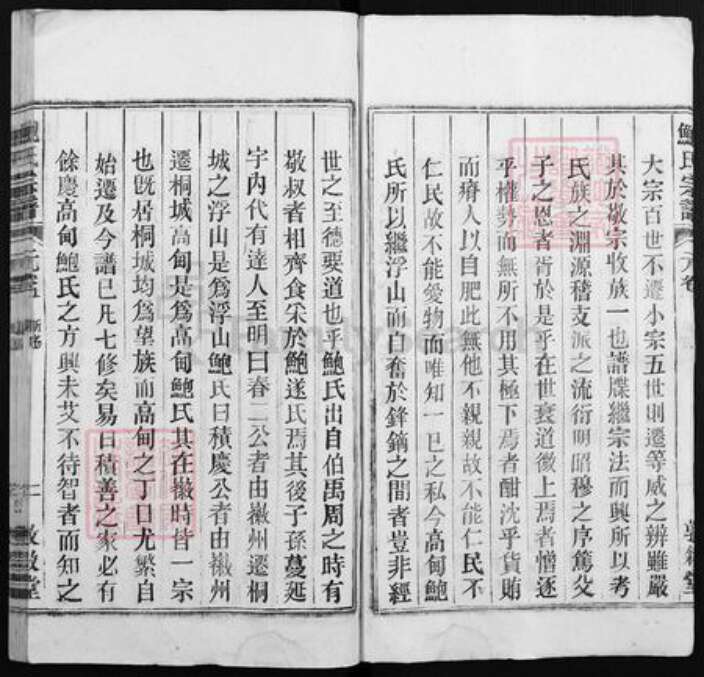 鮑氏宗譜
大宗百世不遷小宗五世則遷等威之辨雖嚴
其於敬宗收族一也譜牒繼宗法而興所以考
氏族之淵源稽支派之流衍明昭穆之序篤父
子之恩者胥於是乎在世衰道微上焉者憎逐
乎權勢而無所不用其極下焉者酣沈乎貨賄
而瘠人以自肥此無他不親親故不能仁民不
仁民故不能愛物而唯知一己之私今高甸鮑
氏所以繼浮山而自奮於鋒鏑之間者豈非經
世之至德要道也乎鮑氏出自伯禹周之時有
敬叔者相齊食宋於鮑遂氏焉其後子孫蔓延
宇內代有達人至明曰春二公者由徽州遷桐
城之浮山是爲浮山鮑氏曰積慶公者由徽州
遷桐城高甸是爲高甸鮑氏其在徽時皆一宗
也旣居桐城均爲望族而高甸之丁口尤繁自
始遷及今譜已凡七修矣易曰積善之家必有
餘慶高甸鮑氏之方興未艾不待智者而知之